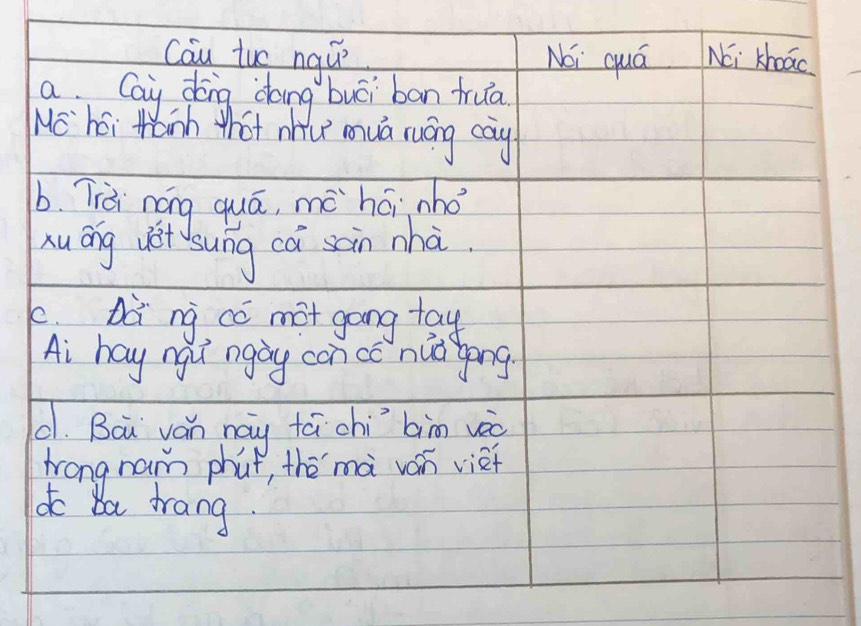 Câu tục ngữ. Nói quá Nói khoác
a. Cày đồng đang buổi ban trưa.
Mồ hôi thánh thót như mưa ruộng cày
b. Trời nóng quá, mồ hôi nhỏ
xuống ướt sũng cả sàn nhà.
c. Đời ng có một gang tay
Ai hay ngủ ngày còn có nửa gang.
d. Bài văn này tớ chỉ làm vèo
trong năm phút, thế mà vẫn viết
đc ba trang.